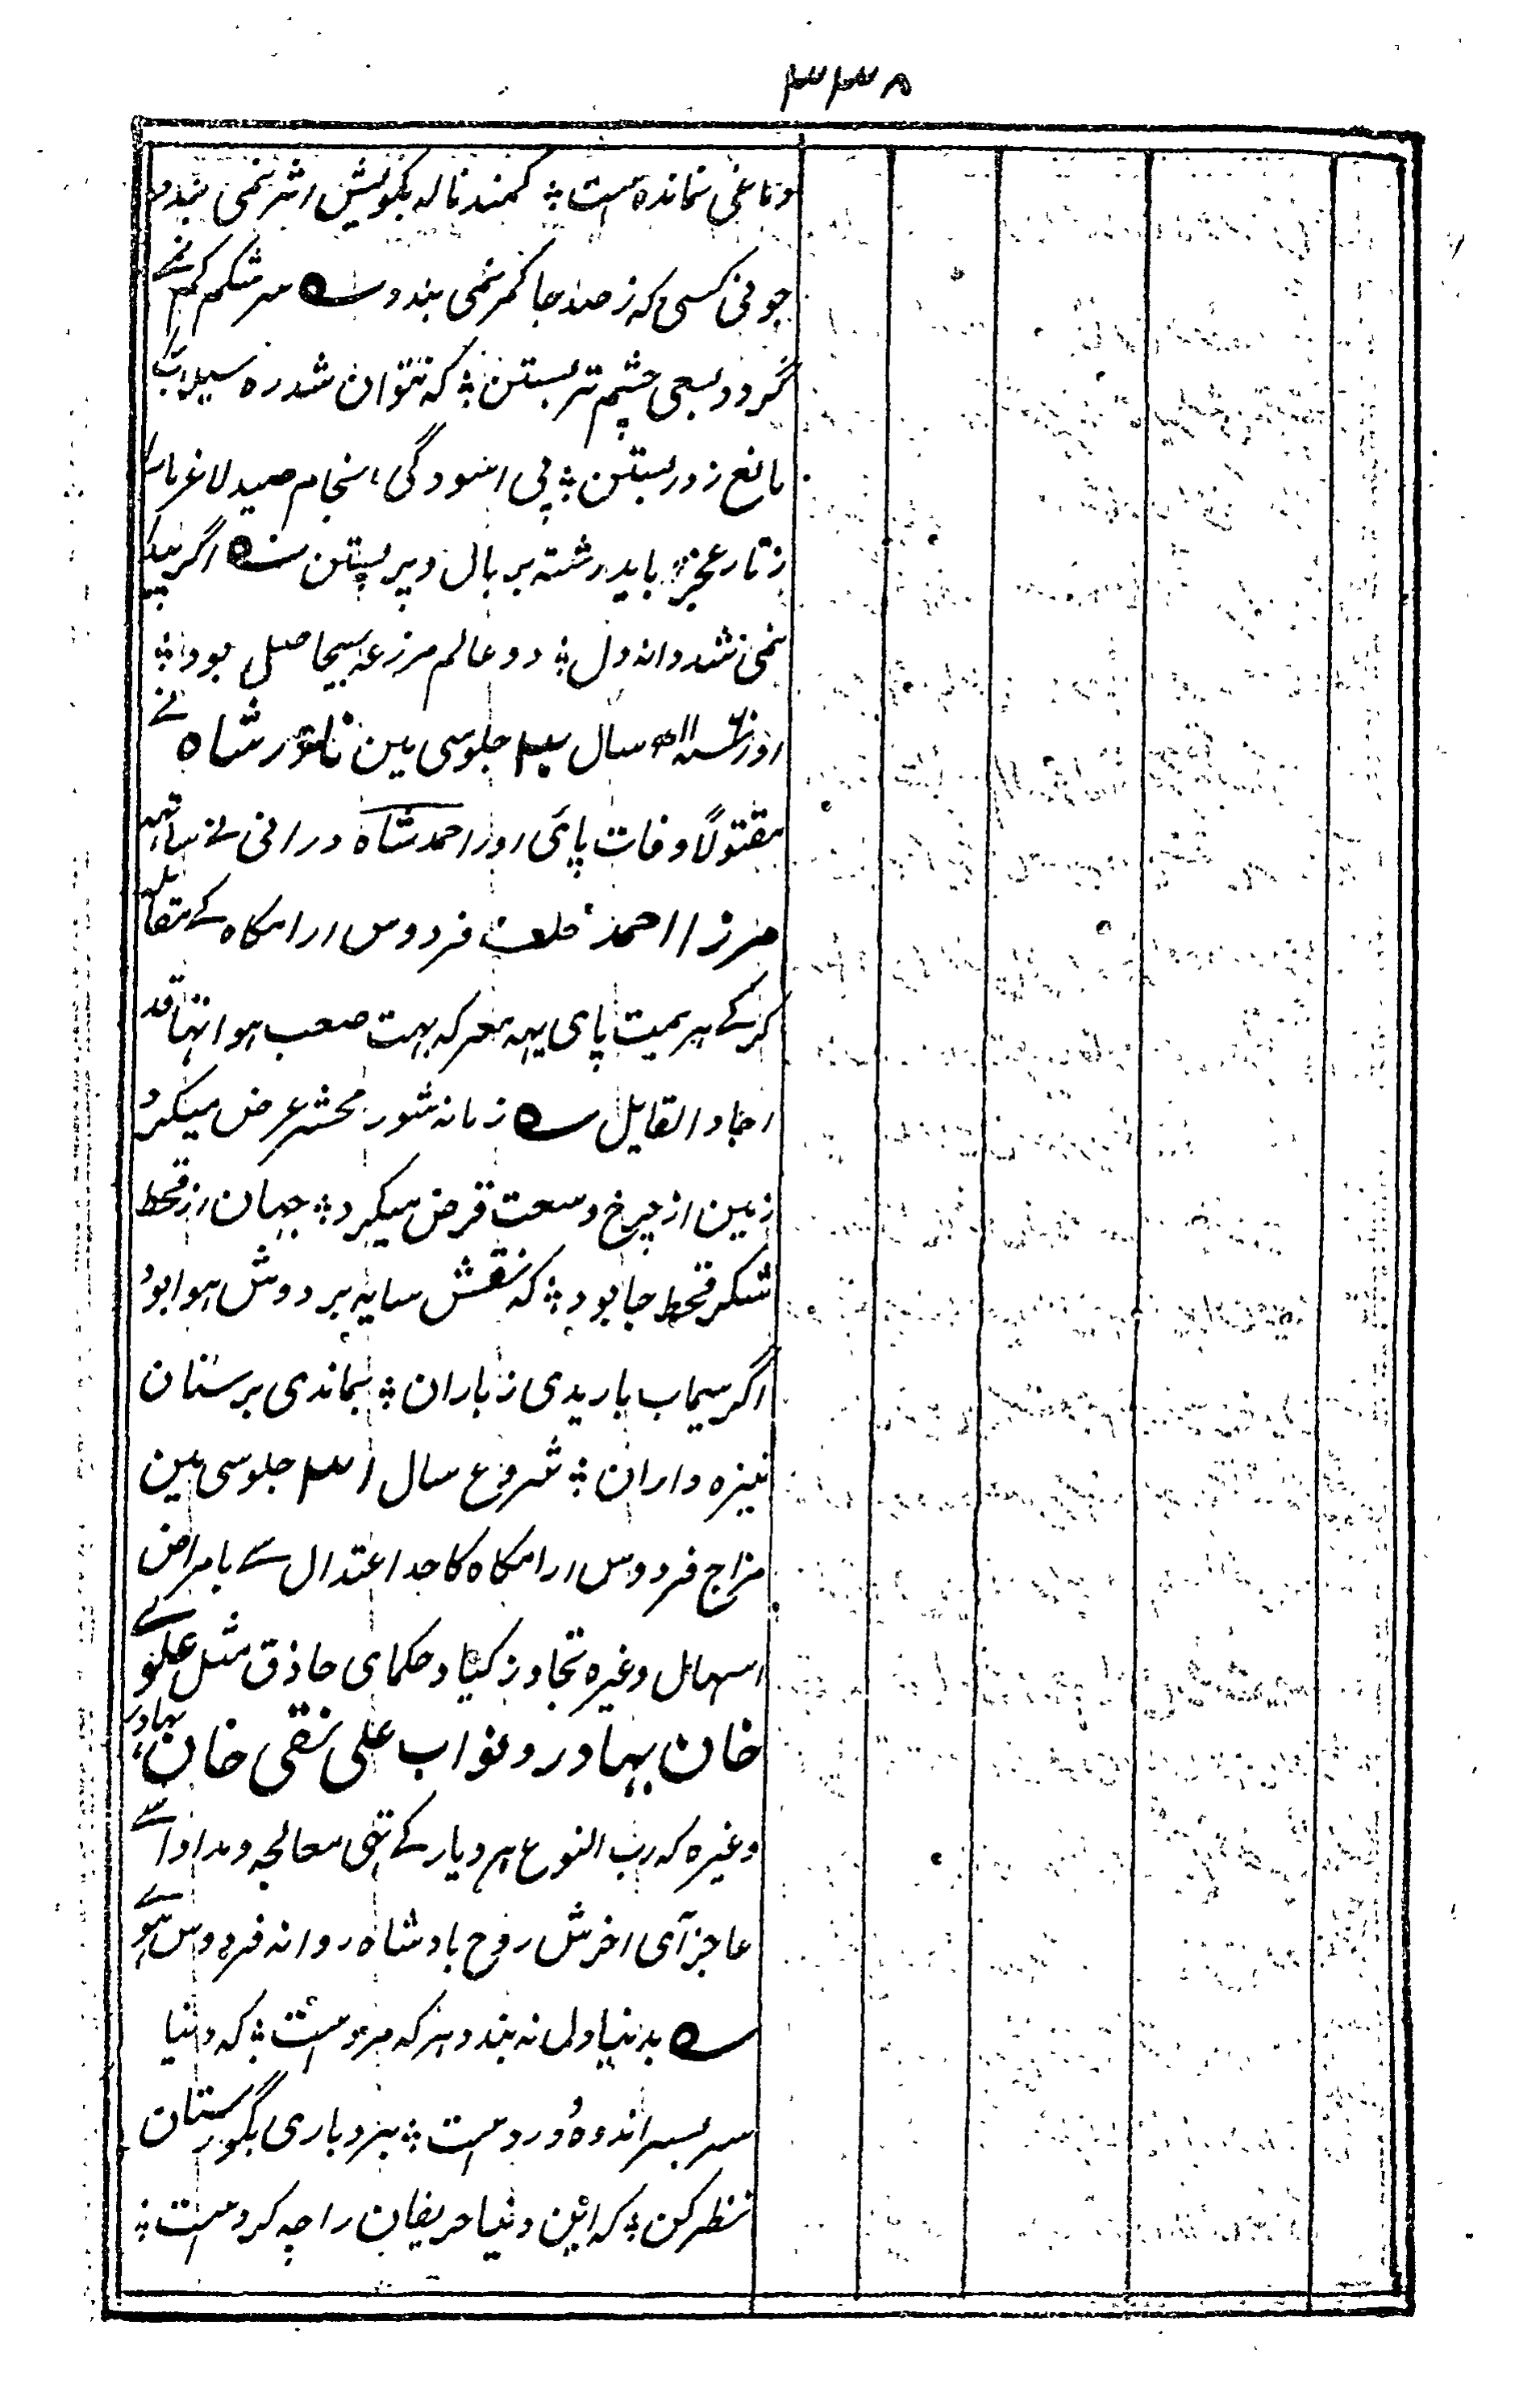 ۳۳۸
دماغی نمانده است ؞ کمند ناله بگویش اثر نمی بندد
چونی کسی که ز صد جا کمر نمی بندد ؎ سرشکم کم نمے
گردد بسعی چشم تر بستن ؞ که نتوان شد ره سیلاب
مانع ز در بستن ؞ پی آسودگی انجام صید لاغر ما را
ز تار عجز باید رشته بر بال و پر بستن ؎ اگر پیدا
نمی شد دانه دل ؞ دو عالم مرزعه بیحاصل بود ؞
اور سنه سال ۳۰ جلوسی مین نادر شاه نے
مقتولاً وفات پائی اور احمد شاه درانی نے ساتهه
مرزا احمد خلف فردوس ارامگاه کے مقابله
کرکے ہزیمت پای یهه معرکه بهت صعب هوا تها قد
اجاد القایل ؎ زمانه شور محشر عرض میکرد
زمین از چرخ وسعت قرض میکرد ؞ جهان از قحط
شکر قحط جا بود ؞ که نقش سایه بر دوش هوا بود
اگر سیماب باریدی ز باران ؞ بماندی بر سنان
نیزه داران ؞ شروع سال ۳۱ جلوسی مین
مزاج فردوس ارامگاه کا حد اعتدال سے بامراض
اسهال وغیره تجاوز کیا و حکمای حاذق مثل علوے
خان بهادر و نواب علی نقی خان بهادر
وغیره که رب النوع هر دیار کے تهی معالجه و مداوا سے
عاجز آی اخرش روح بادشاه روانه فردوس هوے
؎ بدنیا دل نه بندد هر که مردست ؞ که دنیا
سر بسر اندوه و دردست ؞ بزدباری بگورستان
نظر کن ؞ که این دنیا حریفان را چه کردست ؞